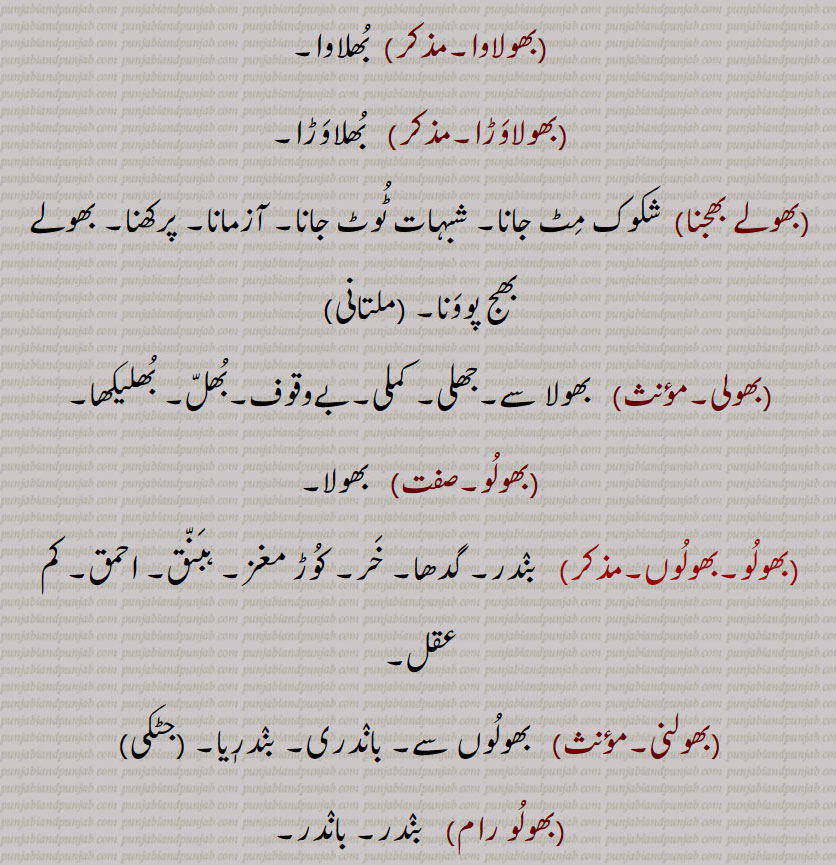 (بھولاوا۔مذکر) بُھلاوا۔
(بھولاوَڑا۔مذکر) بُھلاوَڑا۔
(بھولے بھجنا) شکوک مِٹ جانا۔ شبہات ٹُوٹ جانا۔ آزمانا۔ پرکھنا۔ بھولے
بھج پووَنا۔ (ملتانی)
(بھولی۔مؤنث) بھولا سے۔جھلی۔ کملی۔بےوقوف۔بُھلّ۔ بُھلیکھا۔
(بھولُو۔صفت) بھولا۔
(بھولُو۔بھولُوں۔مذکر) بنْدر۔ گدھا۔ خَر۔ کوُڑ مغز۔ ہبَنّق۔ احمق۔ کم
عقل۔
(بھولنی۔مؤنث) بھولُوں سے۔ بانْدری۔ بنْدرِیا۔ (جٹکی)
(بھولُو رام) بنْدر۔ بانْدر۔
punjabiandpunjab.com